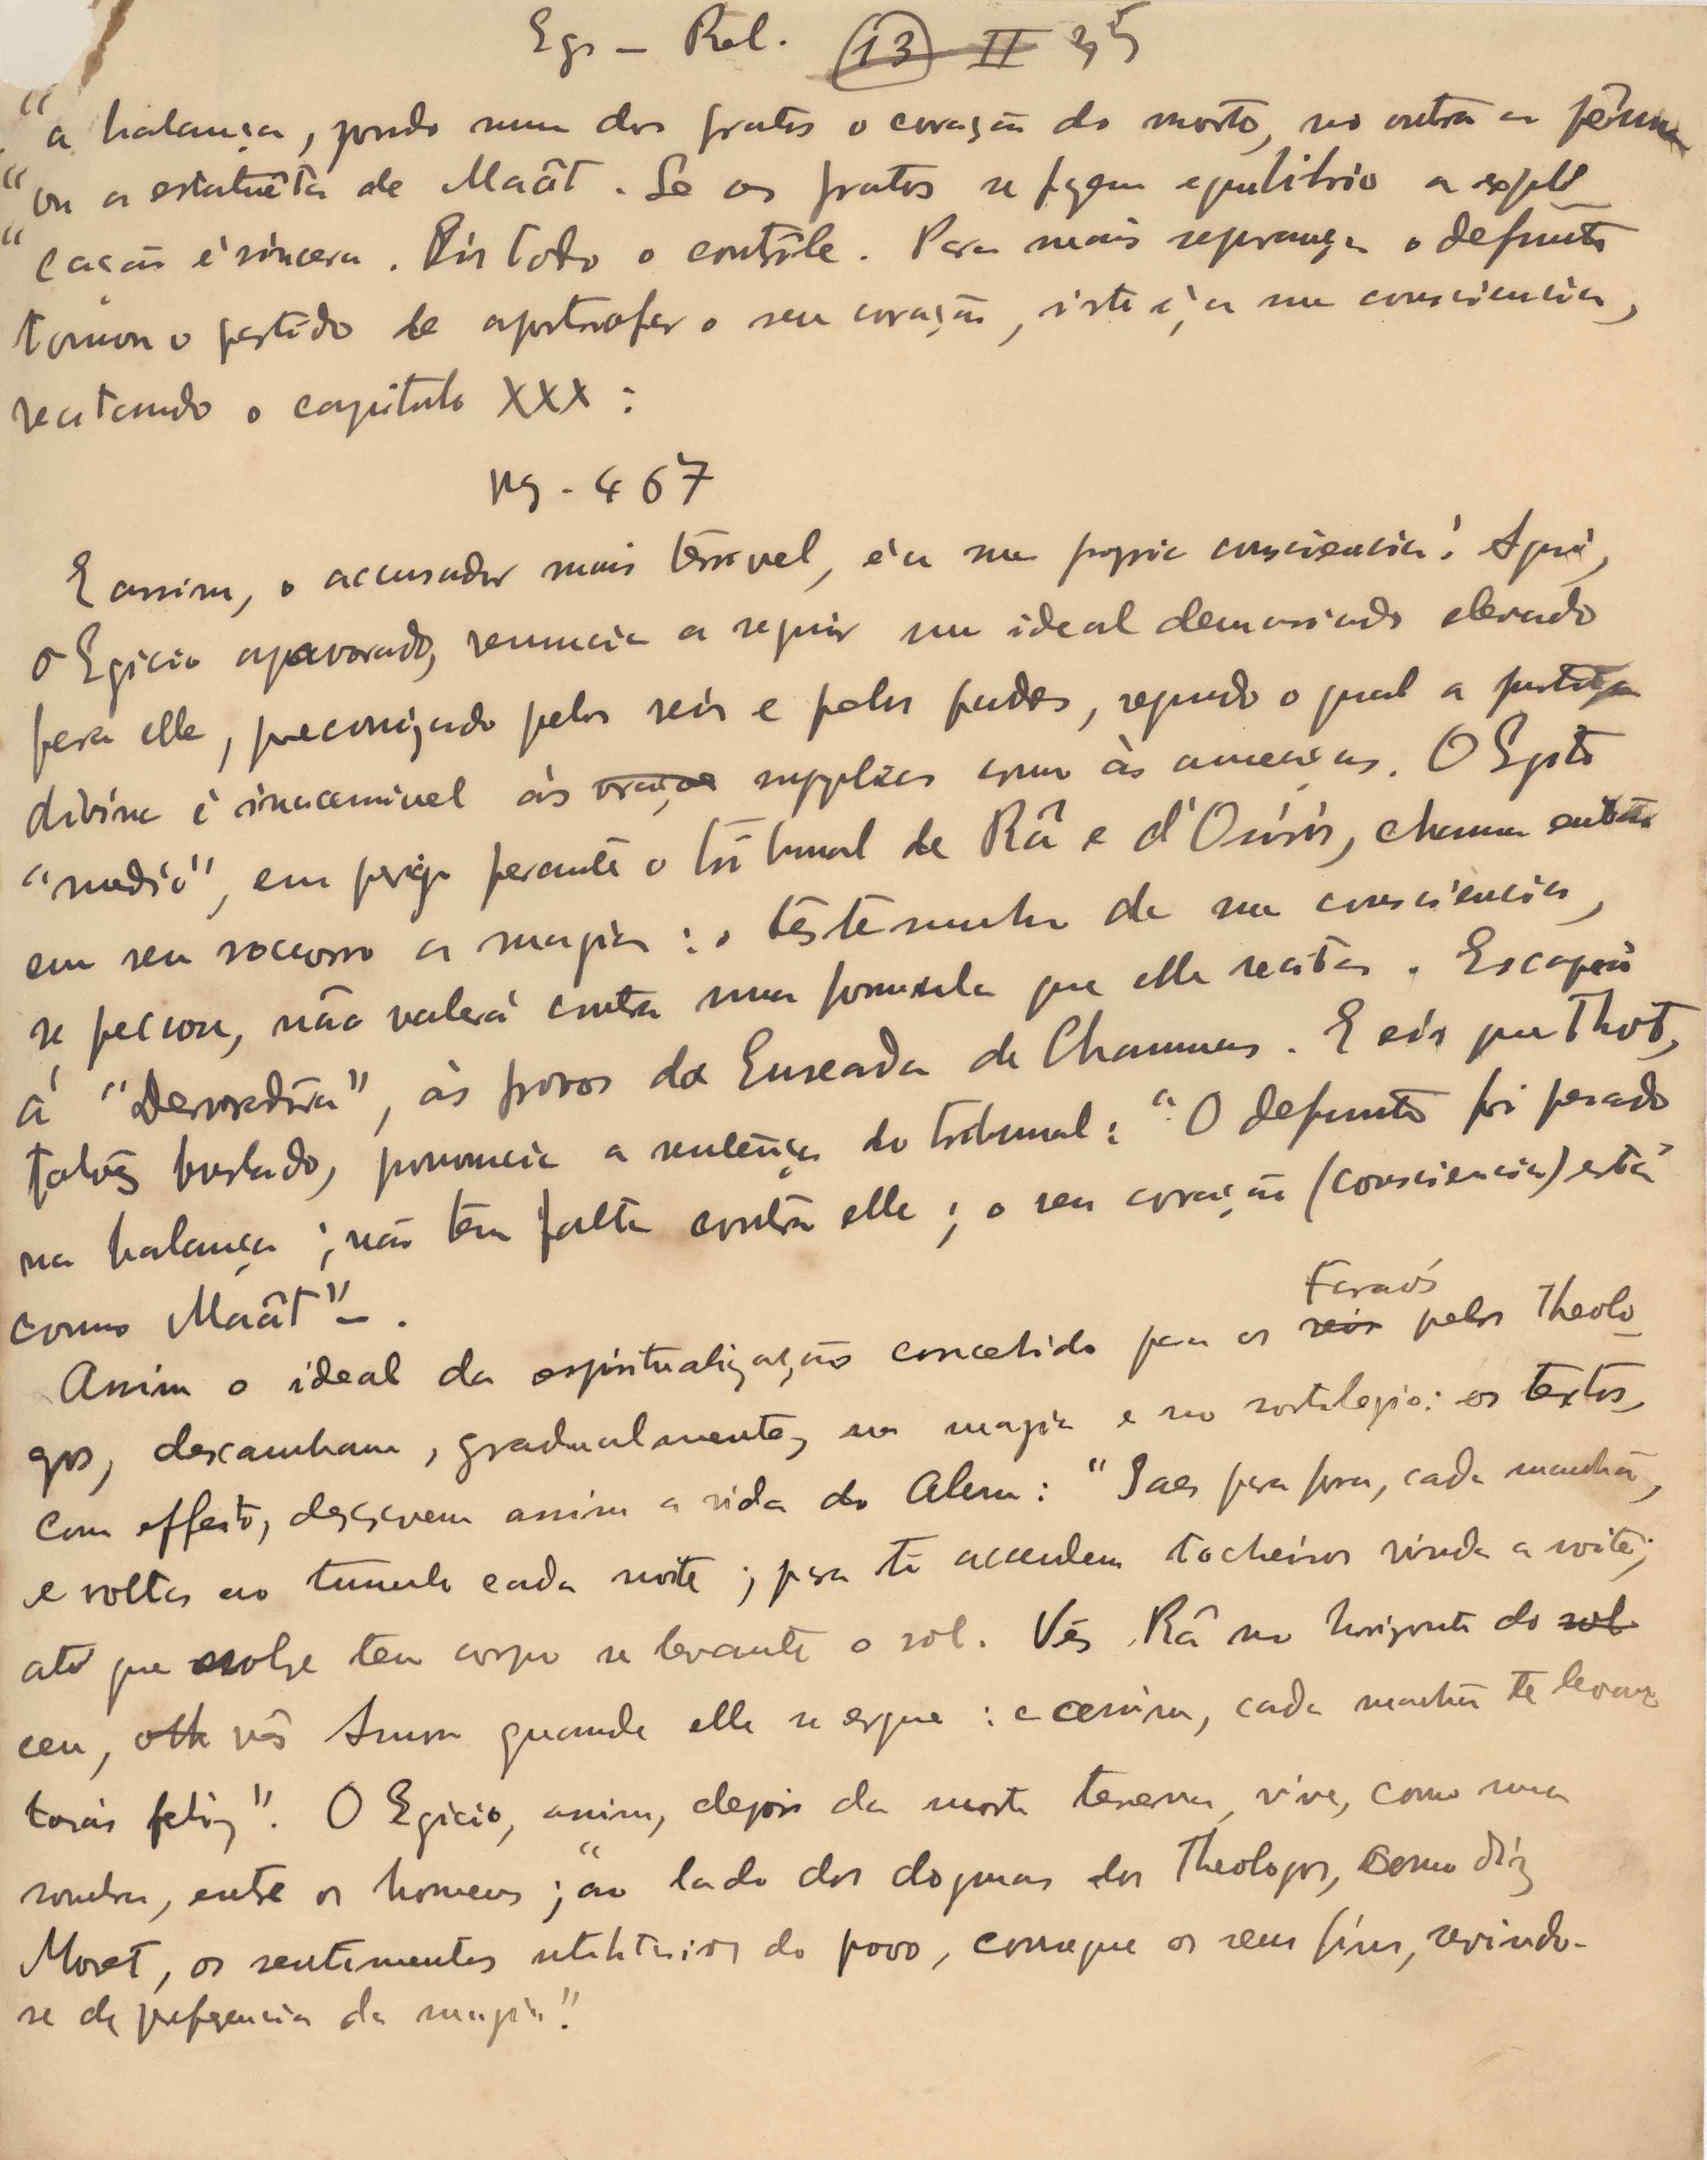 Eg. - Rel. 13 II 35
"a balança, pondo num dos pratos o coração do morto, no outro a penna
"ou a estatuêta de Maât. Se os pratos se fazem equilibrio a expli
"cação é sincera. Eis todo o contrôle. Para mais segurança o defunto
tomou o partido de apostrofar o seu coração, isto é, a sua consciencia,
recitando o capitulo XXX:
pg. 467
E assim, o accusador mais terrivel, é a sua propria consciencia! Aqui,
o Egicio apavorado, renuncia a seguir um ideal demasiado elevado
para elle, preconizado pelos reis e pelos padres, segundo o qual a justiça
divina é inaccessivel ás supplicas como às ameaças. O Egito
"medio", em perigo perante o tribunal de Râ e d'Osiris, chama então
em seu soccorro a magia: o testemunho da sua consciencia,
se peccou, não valerá contra uma formula que elle recita. Escapou
á "Devoradora", às provas da Enseada de Chammas. E eis que Thot,
talvez burlado, pronuncia a sentença do tribunal: "O defunto foi pesado
na balança; não tem falta contra elle; o seu coração (consciencia) está
como Maât" - .
Faraós
Assim o ideal da espiritualização concebido para os reis pelos Theolo-
gos, descambam, gradualmente, na magia e no sortilegio: os textos,
com effeito, descrevem assim a vida do Alem: "Saes para fora, cada manhã,
e voltas ao tumulo cada noite; para ti accendem tocheiros vinda a noite;
até que sobre teu corpo se levante o sol. Vês Râ no horizonte do sol
ceu, vês Amon quando elle se ergue: e assim, cada manhã te levan
tarás feliz". O Egicio, assim, depois da morte terrena, vive, como uma
sombra, entre os homens; "ao lado dos dogmas dos Theologos, como diz
Moret, os sentimentos utilitarios do povo, consegue os seus fins, servindo-
se de preferencia da magia".